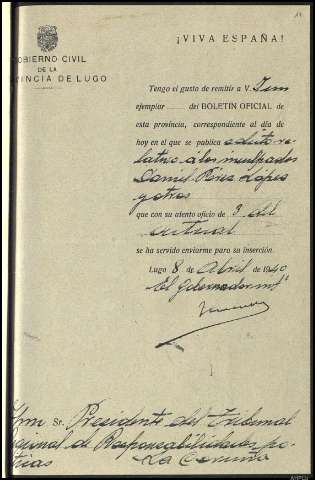 ¡VIVA ESPAÑA!
GOBIERNO CIVIL
DE LA
PROVINCIA DE LUGO
Tengo el gusto de remitir a V.
ejemplar del BOLETÍN OFICIAL de
esta provincia, correspondiente al día de
hoy en el que se publica edicto re-
lativo á los inculpados
Daniel Pérez López
y otros
que con su atento oficio de 3 del
actual
se ha servido enviarme para su inserción.
Lugo 8 de Abril de 1940
El Gobernador
Sr. Presidente del Tribunal
Regional de Responsabilidades po-
La Coruña